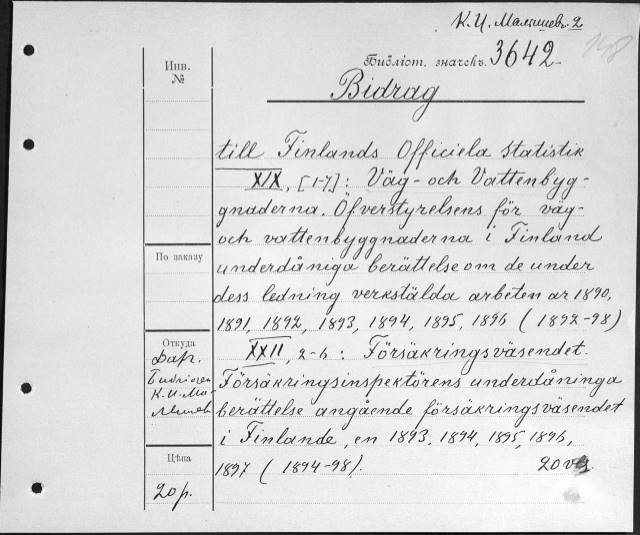 К.И. Малышевъ. 2
148
Библіот. значекъ. 3642
Инв.
№
Bidrag
till Finlands Officiela Statistik
XIX, [1-7]: Väg- och Vattenbyg-
gnaderna. Öfverstyrelsens för väg-
och vattenbyggnaderna i Finland
По заказу
underdåniga berättelse om de under
dess ledning verkstälda arbeten ar 1890,
1891, 1892, 1893, 1894, 1895, 1896 (1892-98)
Откуда
Дар.
Библіотеки
К.И. Ма-
лышева
XXII, 2-6: Försäkringsväsendet.
Försäkringsinspektörens underdåninga
berättelse angående försäkringsväsendet
i Finlande, en 1893, 1894, 1895, 1896,
1897 (1894-98).
Цѣна
20 р.